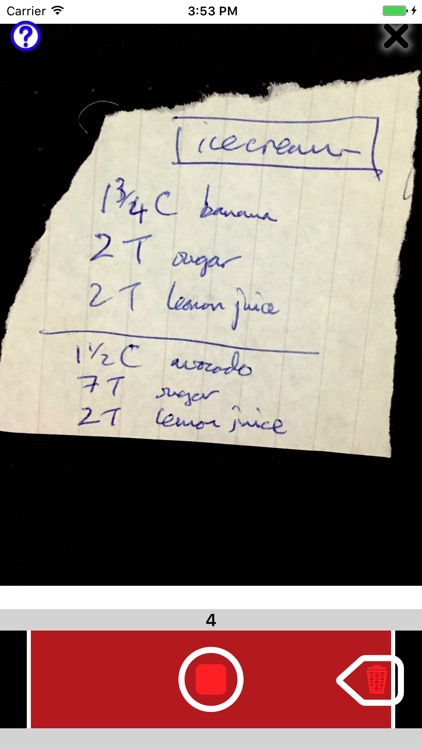 Carrier 3:53 PM
?
icecream
1 3/4 C banana
2 T sugar
2 T lemon juice
1 1/2 C avocado
7 T sugar
2 T lemon juice
4